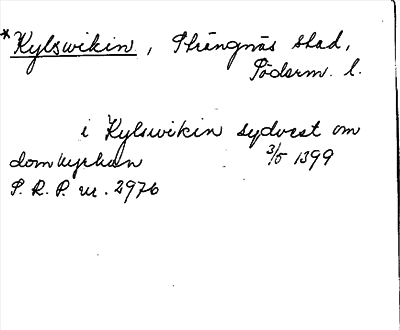 *Kylswikin, Strängnäs stad,
Söderm. l.
i Kylswikin sydvest om
domkyrkan 3/5 1399
S. R. P. nr. 2976